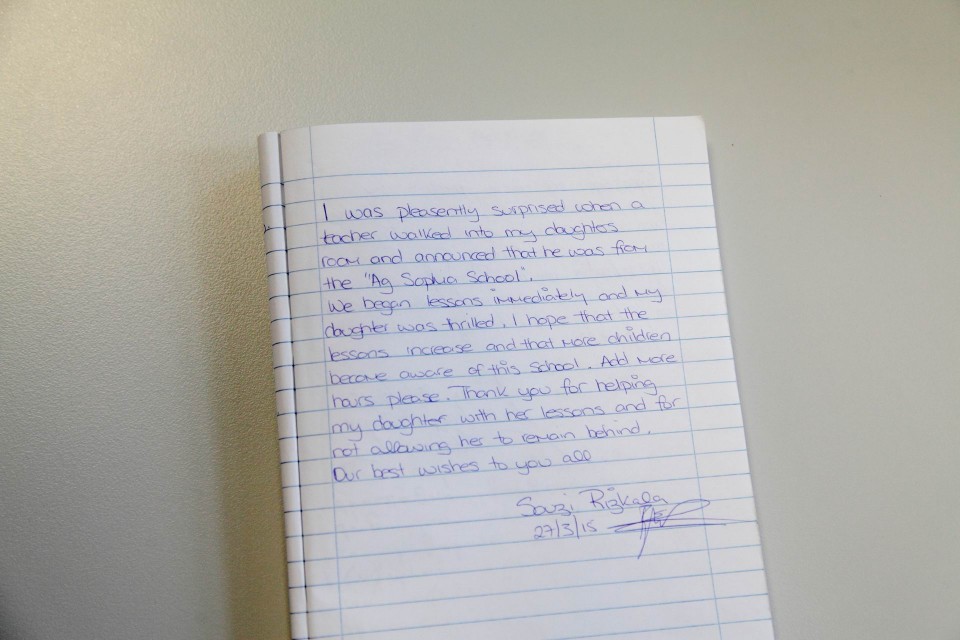 I was pleasently surprised when a
teacher walked into my daughters
room and announced that he was from
the "Ag Sophia School".
We began lessons immediately and my
daughter was thrilled. I hope that the
lessons increase and that more children
become aware of this school. Add more
hours please. Thank you for helping
my daughter with her lessons and for
not allowing her to remain behind.
Our best wishes to you all
Souzi Rizkala
27/3/15